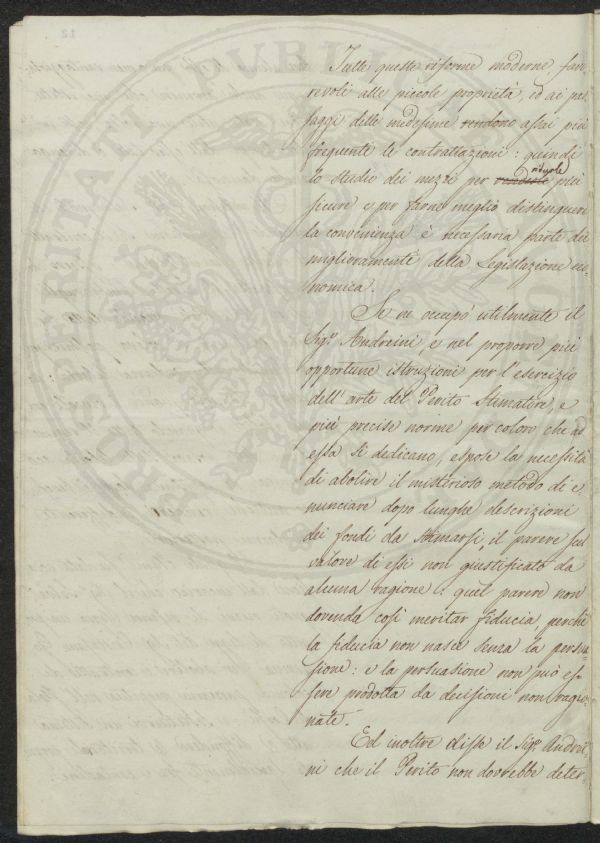 Tutte queste riforme moderne favo-
revoli alle piccole proprietà, ed ai pas-
saggi delle medesime rendono assai più
frequente le contrattazioni: quindi
lo studio dei mezzi per renderle più
ridurle
sicure e per farne meglio distinguere
la convenienza è necessaria parte dei
miglioramenti della Legislazione eco-
nomica.
Se ne occupò utilmente il
Sigr. Andreini, e nel proporre più
opportune istruzioni per l'esercizio
dell'arte del Perito Stimatore, e
più precise norme per coloro che ad
essa si dedicano, espose la necessità
di abolire il misterioso metodo di e-
nunciare dopo lunghe descrizioni
dei fondi da stimarsi, il parere sul
valore di essi non giustificato da
alcuna ragione: quel parere non
dovendo così meritar fiducia, perchè
la fiducia non nasce senza la persua-
sione: e la persuasione non può es-
sere prodotta da decisioni non ragio-
nate.
Ed inoltre disse il Sigr. Andrei-
ni che il Perito non dovrebbe deter-